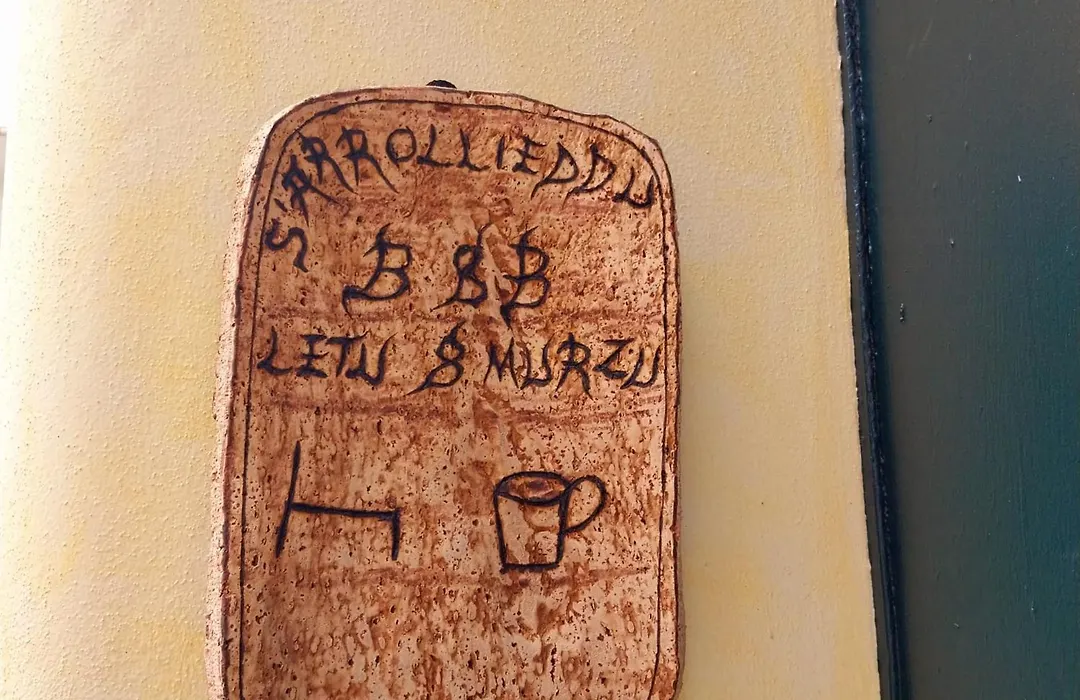 S'ARROLLIEDDU
B & B
LETU & MURZU